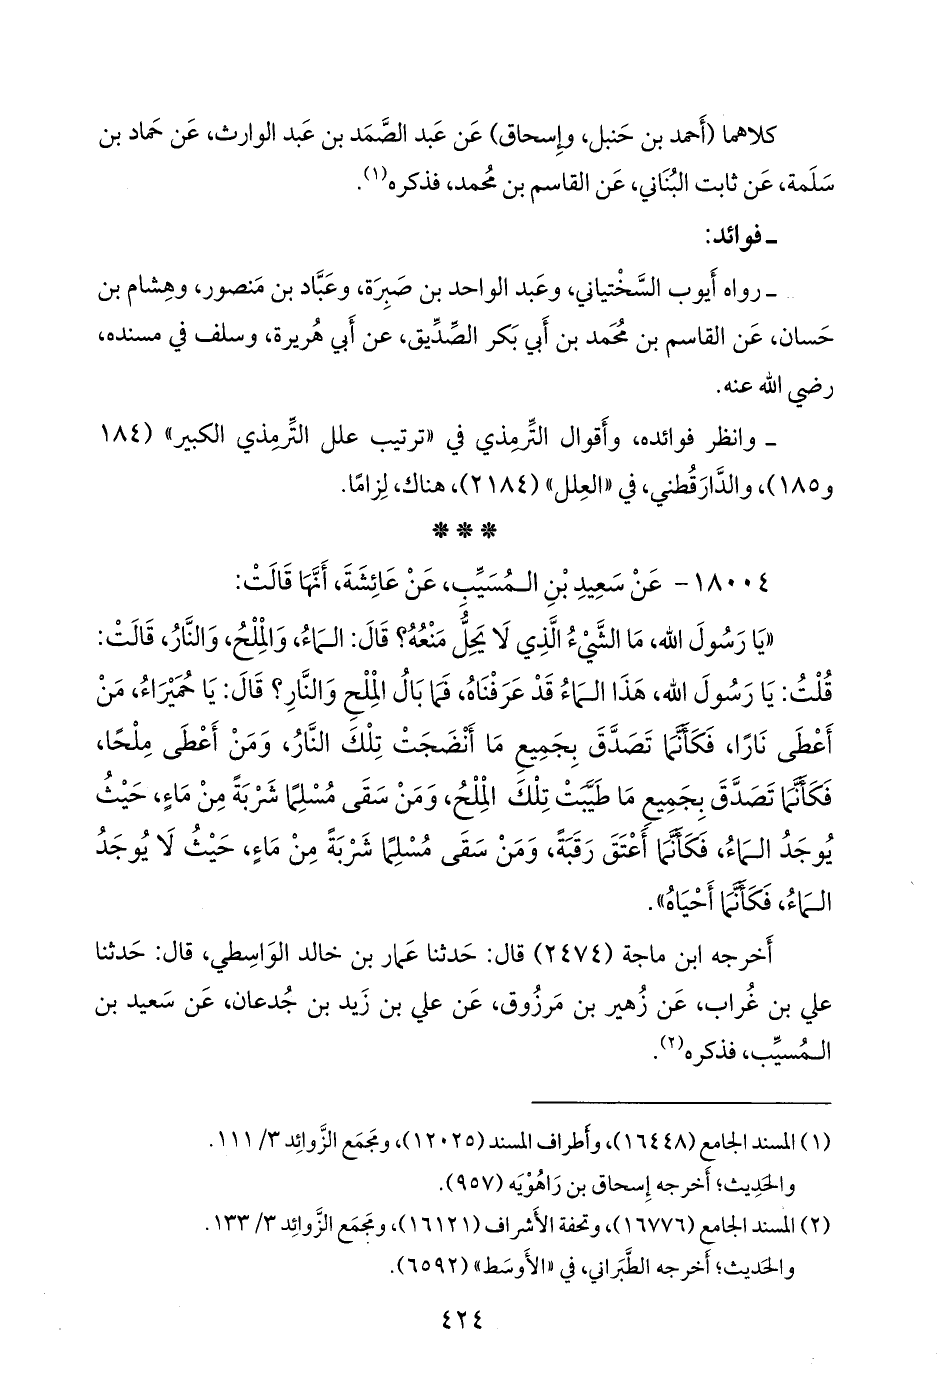 كلاهما (أَحمد بن حَنبل، وإِسحاق) عَن عَبد الصَّمَد بن عَبد الوارث، عَن حَماد بن
سَلَمة، عَن ثابت البُنَاني، عَن القاسم بن مُحمد، فذكره(١).
ـ فوائد:
ـ رواه أَيوب السَّخْتياني، وعَبد الواحد بن صَبِرَة، وعَبَّاد بن مَنصور، وهِشام بن
حَسان، عَن القاسم بن مُحَمد بن أَبي بَكر الصِّدِّيق، عن أَبي هُريرة، وسلف في مسنده،
رضي الله عنه.
ـ وانظر فوائده، وأَقوال التِّرمِذي في «ترتيب علل التِّرمِذي الكبير» (١٨٤
و١٨٥)، والدَّارَقُطني، في «العِلل» (٢١٨٤)، هناك، لِزامًا.
* * *
١٨٠٠٤ - عَنْ سَعِيدِ بْنِ الـمُسَيِّبِ، عَنْ عَائِشَةَ، أَنَّهَا قَالَتْ:
«يَا رَسُولَ الله، مَا الشَّيْءُ الَّذِي لَا يَحِلُّ مَنْعُهُ؟ قَالَ: الـمَاءُ، وَالْمِلْحُ، وَالنَّارُ، قَالَتْ:
قُلْتُ: يَا رَسُولَ الله، هَذَا الـمَاءُ قَدْ عَرَفْنَاهُ، فَمَا بَالُ الْمِلْحِ وَالنَّارِ؟ قَالَ: يَا حُمَيْرَاءُ، مَنْ
أَعْطَى نَارًا، فَكَأَنَّمَا تَصَدَّقَ بِجَمِيعِ مَا أَنْضَجَتْ تِلْكَ النَّارُ، وَمَنْ أَعْطَى مِلْحًا،
فَكَأَنَّمَا تَصَدَّقَ بِجَمِيعِ مَا طَيَّبَتْ تِلْكَ الْمِلْحُ، وَمَنْ سَقَى مُسْلِمًا شَرْبَةً مِنْ مَاءٍ، حَيْثُ
يُوجَدُ الـمَاءُ، فَكَأَنَّمَا أَعْتَقَ رَقَبَةً، وَمَنْ سَقَى مُسْلِمًا شَرْبَةً مِنْ مَاءٍ، حَيْثُ لَا يُوجَدُ
الـمَاءُ، فَكَأَنَّمَا أَحْيَاهُ».
أَخرجه ابن ماجة (٢٤٧٤) قال: حَدثنا عَمار بن خالد الوَاسِطي، قال: حَدثنا
علي بن غُراب، عَن زُهير بن مَرزُوق، عَن علي بن زَيد بن جُدعان، عَن سَعيد بن
الـمُسيِّب، فذكره(٢).
(١) المسند الجامع (١٦٤٤٨)، وأَطراف المسند (١٢٠٢٥)، ومَجمَع الزَّوائِد ٣/ ١١١.
والحَدِيث؛ أَخرجه إِسحاق بن رَاهُوْيَه (٩٥٧).
(٢) المسند الجامع (١٦٧٧٦)، وتحفة الأَشراف (١٦١٢١)، ومَجمَع الزَّوائِد ٣/ ١٣٣.
والحَديث؛ أَخرجه الطَّبَراني، في «الأَوسَط» (٦٥٩٢).
٤٢٤